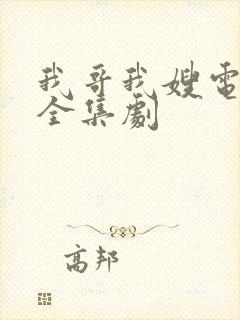 我哥我嫂電
全集劇
高邦